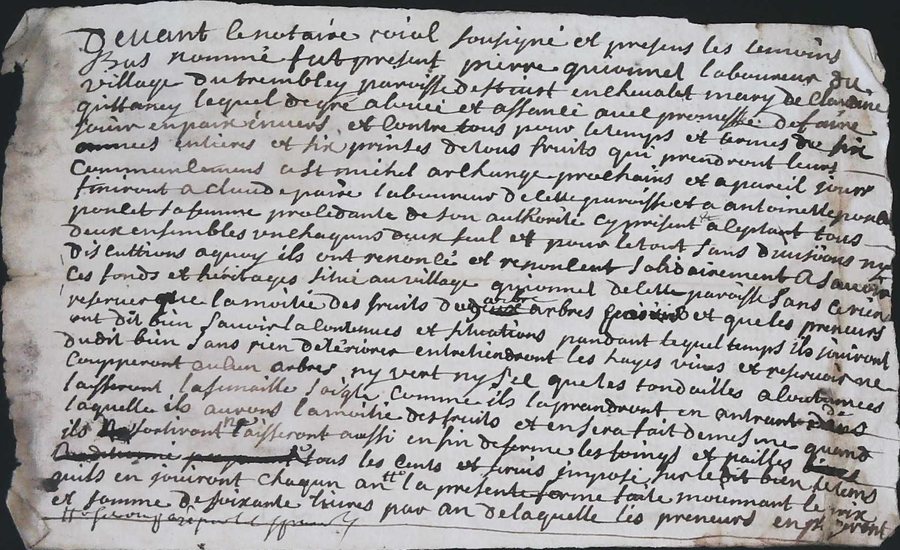 Devant le notaire roial sousigné et presens les temoins
Bas nommé fut present pierre quionnel laboureur du
village du trembley paroisse de st iust en chevalet mary de Claudine
quittancy lequel de gré a baillé et assancé avec promesse de faire
jouir en paix envers et contre tous pour le temps et termes de six
années entieres et six prinses de tous fruits qui prendront leurs
Commencemens a st michel archange prochains et a pareil jour
finiront a claude paire laboureur de cette paroisse et a antoinette
poncet sa femme procedante de son authorité cy present acceptant tous
deux ensembles un chaquns deux seul et pour le tout sans divisions ny
Discuttions a quoy ils ont renoncé et renoncent solidairement A Savoir
Ces fonds et heritages situé au village quionnel de cette paroisse sans ce rien
reserver que la moitié des fruits des arbres et que les preneurs
ont dit bien savoir la contenues et situations pandant lequel temps ils jouiront
du dit bien sans rien deteriorer entretiendront les hayes vives et reservoir ne
Coupperont aucun arbres ny vert ny sec que les tondailles accoutumées
laisseront la semaille soigle Comme ils la prandront en antrant dans
laquelle ils aurons la moitié des fruits et en sera fait de mesme quand
ils sortiront laisseront aussi en fin de ferme les foings et pailles
tous les Cents et servis imposé sur le dit bien le tems
quils en jouiront Chaqun an la presente ferme faite moiennant le prix
et somme de soixante livres par an de laquelle les preneurs en